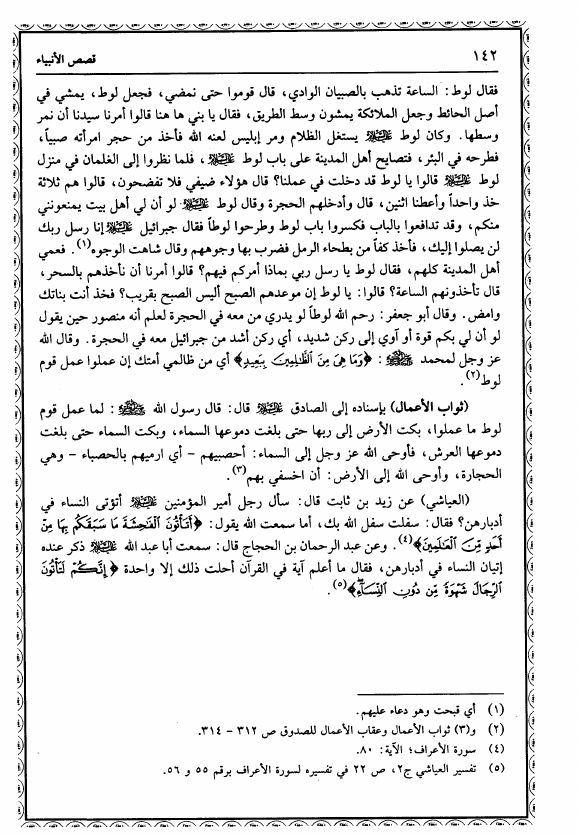 ١٤٢
قصص الأنبياء
فقال لوط: الساعة تذهب بالصبيان الوادي، قال قوموا حتى نمضي، فجعل لوط، يمشي في
أصل الحائط وجعل الملائكة يمشون وسط الطريق، فقال يا بني ها هنا قالوا أمرنا سيدنا أن نمر
وسطها. وكان لوط عليه السلام يستغل الظلام ومر إبليس لعنه الله فأخذ من حجر امرأته صبياً،
فطرحه في البئر، فتصايح أهل المدينة على باب لوط عليه السلام، فلما نظروا إلى الغلمان في منزل
لوط عليه السلام قالوا يا لوط قد دخلت في عملنا؟ قال هؤلاء ضيفي فلا تفضحون، قالوا هم ثلاثة
خذ واحداً وأعطنا اثنين، قال وأدخلهم الحجرة وقال لوط عليه السلام لو أن لي أهل بيت يمنعونني
منكم، وقد تدافعوا بالباب فكسروا باب لوط وطرحوا لوطاً فقال جبرائيل عليه السلام إنا رسل ربك
لن يصلوا إليك، فأخذ كفاً من بطحاء الرمل فضرب بها وجوههم وقال شاهت الوجوه(١). فعمي
أهل المدينة كلهم، فقال لوط يا رسل ربي بماذا أمركم فيهم؟ قالوا أمرنا أن نأخذهم بالسحر،
قال تأخذونهم الساعة؟ قالوا: يا لوط إن موعدهم الصبح أليس الصبح بقريب؟ فخذ أنت بناتك
وامض. وقال أبو جعفر: رحم الله لوطاً لو يدري من معه في الحجرة لعلم أنه منصور حين يقول
لو أن لي بكم قوة أو آوي إلى ركن شديد، أي ركن أشد من جبرائيل معه في الحجرة. وقال الله
عز وجل لمحمد ﷺ: ﴿وَمَا هِىَ مِنَ ٱلظَّٰلِمِينَ بِبَعِيدٍ﴾ أي من ظالمي أمتك إن عملوا عمل قوم
لوط(٢).
(ثواب الأعمال) بإسناده إلى الصادق عليه السلام قال: قال رسول الله ﷺ: لما عمل قوم
لوط ما عملوا، بكت الأرض إلى ربها حتى بلغت دموعها السماء، وبكت السماء حتى بلغت
دموعها العرش، فأوحى الله عز وجل إلى السماء: أحصبيهم – أي ارميهم بالحصباء – وهي
الحجارة، وأوحى الله إلى الأرض: أن اخسفي بهم(٣).
(العياشي) عن زيد بن ثابت قال: سأل رجل أمير المؤمنين عليه السلام أتؤتى النساء في
أدبارهن؟ فقال: سفلت سفل الله بك، أما سمعت الله يقول: ﴿أَتَأْتُونَ ٱلْفَٰحِشَةَ مَا سَبَقَكُم بِهَا مِنْ
أَحَدٍ مِّنَ ٱلْعَٰلَمِينَ﴾(٤). وعن عبد الرحمان بن الحجاج قال: سمعت أبا عبد الله عليه السلام ذكر عنده
إتيان النساء في أدبارهن، فقال ما أعلم آية في القرآن أحلت ذلك إلا واحدة ﴿إِنَّكُمْ لَتَأْتُونَ
ٱلرِّجَالَ شَهْوَةً مِّن دُونِ ٱلنِّسَآءِ﴾(٥).
(١) أي قبحت وهو دعاء عليهم.
(٢) و(٣) ثواب الأعمال وعقاب الأعمال للصدوق ص ٣١٢ - ٣١٤.
(٤) سورة الأعراف؛ الآية: ٨٠.
(٥) تفسير العياشي ج٢، ص ٢٢ في تفسيره لسورة الأعراف برقم ٥٥ و ٥٦.